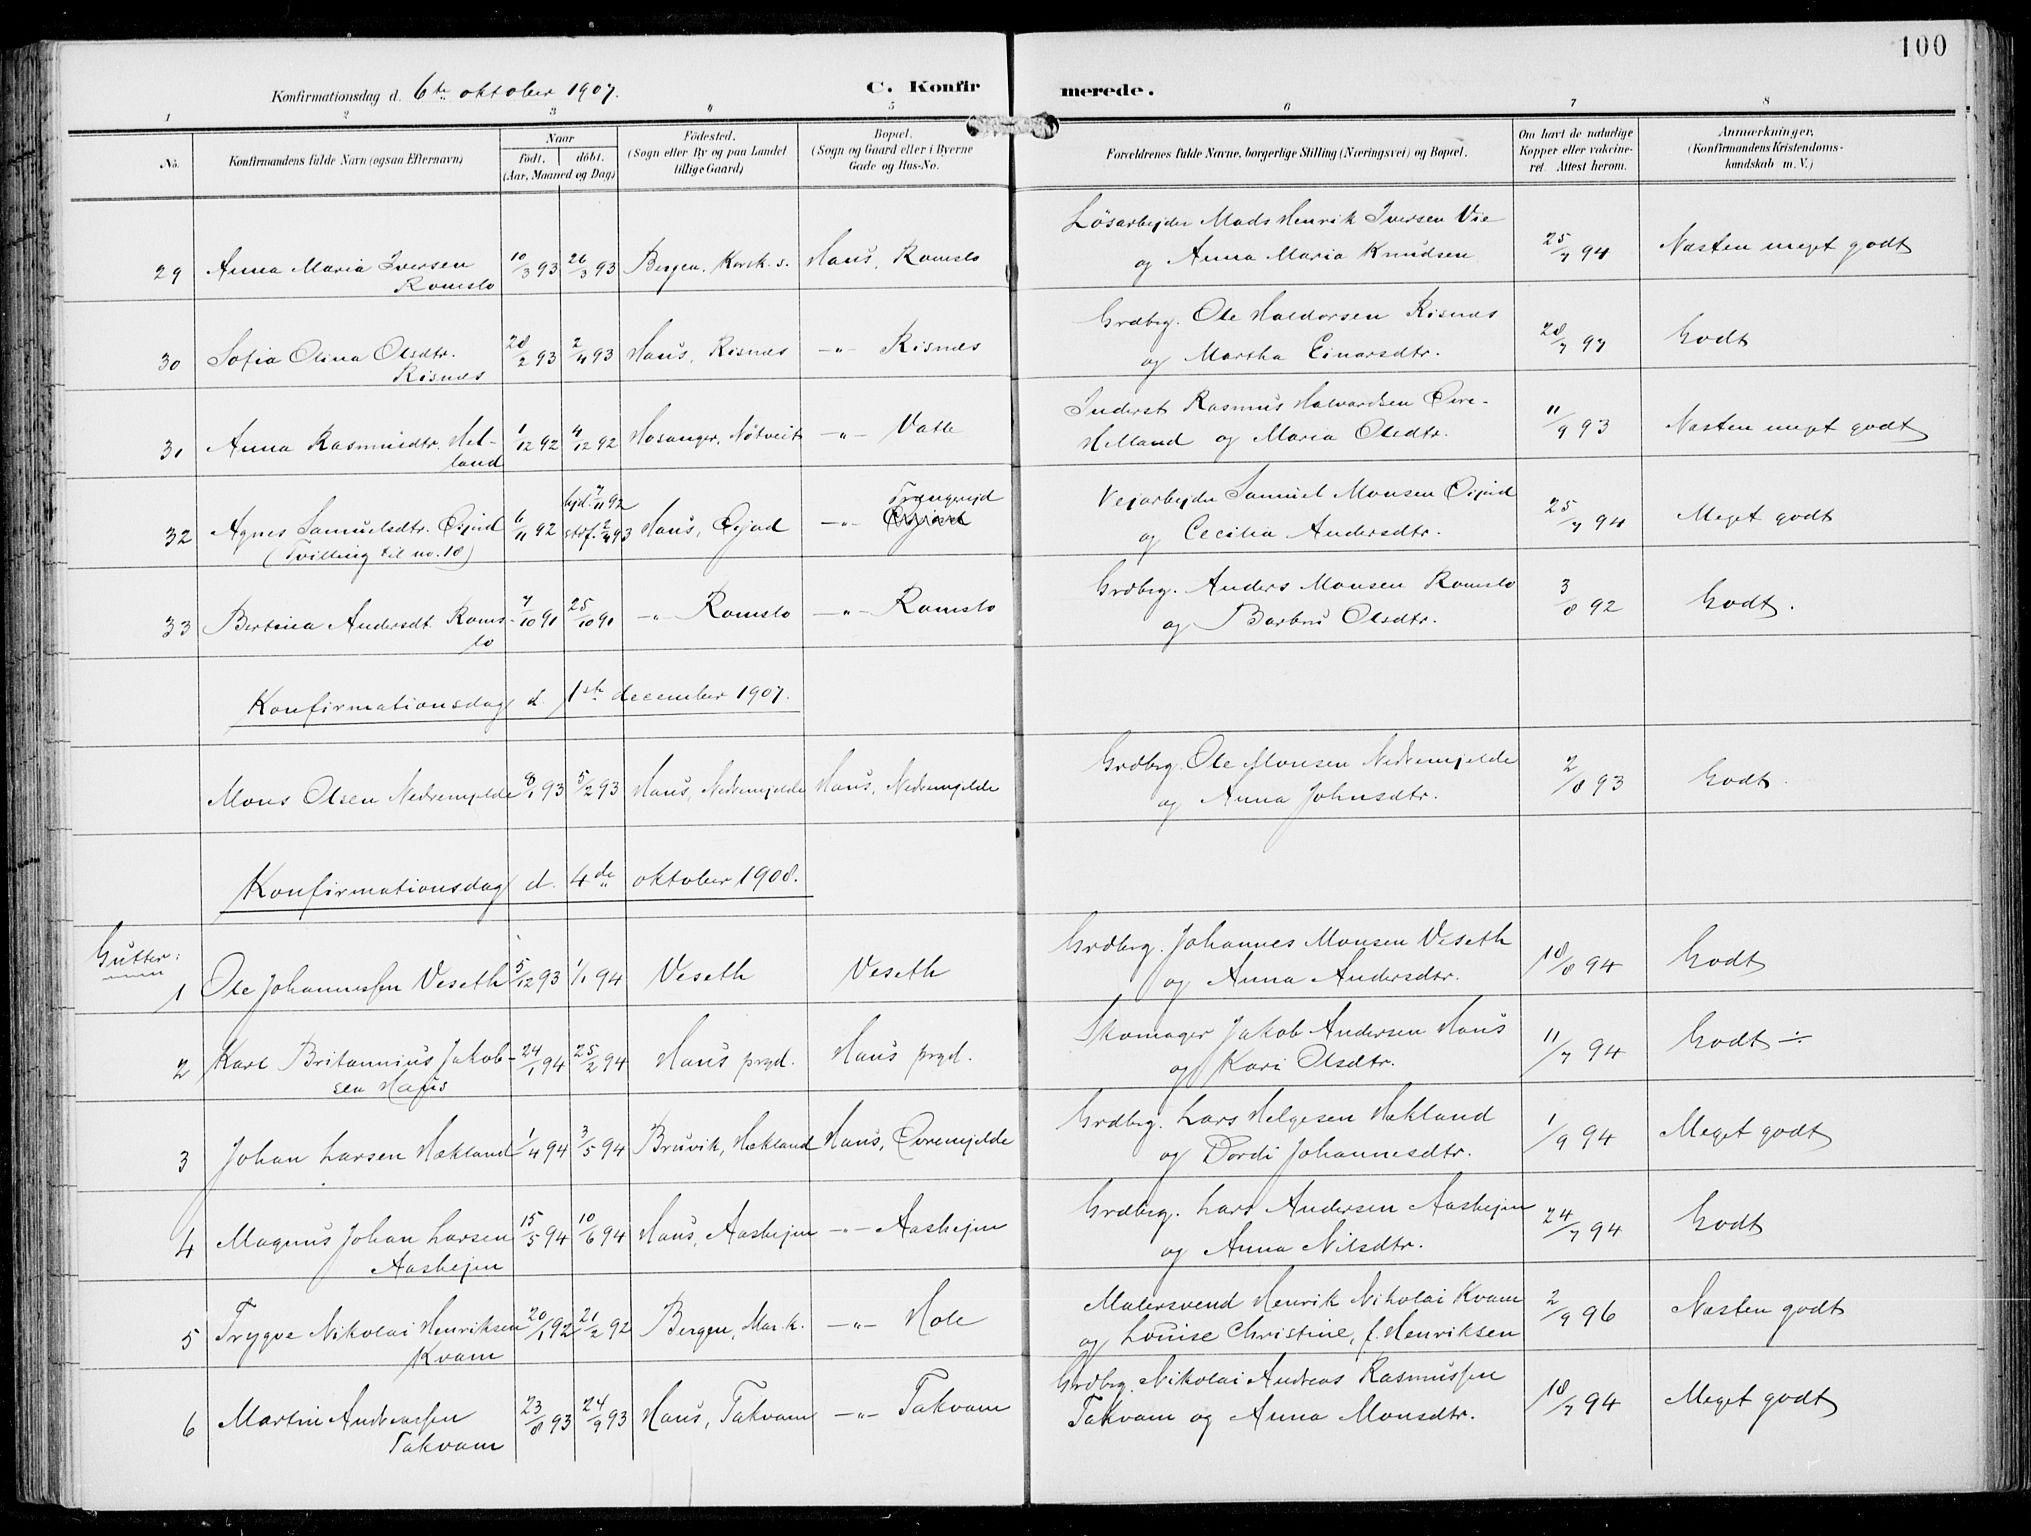 100
Konfirmationsdag d. 6te oktober 1907.
C. Konfirmerede.
1 2 3 4 5 6 7 8
No. Konfirmandens fulde Navn (ogsaa Efternavn) Naar födt. döbt. (Aar, Maaned og Dag) Födested. (Sogn eller By og paa Landet tillige Gaard) Bopæl. (Sogn og Gaard eller i Byerne Gade og Hus-No. Forældrenes fulde Navne, borgerlige Stilling (Næringsvei) og Bopæl. Om havt de naturlige Kopper eller vakcineret. Attest herom. Anmærkninger. (Konfirmandens Kristendomskundskab m. V.)
29 Anna Maria Iversen Romslo 10/3 93 26/3 93 Bergen, Korsk. s. Haus, Romslo Løsarbejder Mads Henrik Iversen Vie og Anna Maria Knudsen 25/7 94 Næsten meget godt
30 Sofia Olina Olsdtr. Risnes 28/2 93 2/4 93 Haus, Risnes -"- Risnes Grdbrg. Ole Haldorsen Risnes og Martha Einarsdtr. 28/7 97 Godt
31 Anna Rasmusdtr. Helland 1/12 92 4/12 92 Hosanger, Nötveit -"- Valle Inderst Rasmus Halvardsen Øvre-Helland og Maria Olsdtr. 11/9 93 Næsten meget godt
32 Agnes Samuelsdtr. Osjord (Tvilling til no. 18) 6/11 92 hjd. 7/11 92 stdf. 2/4 93 Haus, Osjord -"- Trengereid Vejarbejder Samuel Monsen Osjord og Cecilia Andersdtr. 25/7 94 Meget godt
33 Bertina Andersdt. Romslo 7/10 91 25/10 91 -"- Romslo -"- Romslo Grdbrg. Anders Monsen Romslo og Barbru Olsdtr. 3/8 92 Godt.
Konfirmationsdag d. 1ste december 1907.
Mons Olsen Nedremjelde 8/1 93 5/2 93 Haus, Nedremjelde Haus, Nedremjelde Grdbrg. Ole Monsen Nedremjelde og Anna Johnsdtr. 2/8 93 Godt.
Konfirmationsdag d. 4de oktober 1908.
Gutter:
1 Ole Johannessen Veseth 5/12 93 1/1 94 Veseth Veseth Grdbrg. Johannes Monsen Veseth og Anna Andersdtr. 18/8 94 Godt
2 Karl Britannius Jakobsen Haus 24/1 94 25/2 94 Haus prgd. Haus prgd. Skomager Jakob Andersen Haus og Kari Olsdtr. 11/7 94 Godt ÷
3 Johan Larsen Hækland 1/4 94 3/5 94 Bruvik, Hækland Haus, Øvremjelde Grdbrg. Lars Helgesen Hækland og Dordi Johannesdtr. 1/9 94 Meget godt
4 Magnus Johan Larsen Aashejm 15/5 94 10/6 94 Haus, Aashejm -"- Aashejm Grdbrg. Lars Andersen Aashejm og Anna Nilsdtr. 24/7 94 Godt
5 Trygve Nikolai Henriksen Kvam 20/1 92 21/2 92 Bergen, Mar.k. -"- Hole Malersvend Henrik Nikolai Kvam og Louise Christine, f. Henriksen 2/9 96 Næsten godt
6 Martin Andreassen Takvam 23/8 93 24/9 93 Haus, Takvam -"- Takvam Grdbrg. Nikolai Andreas Rasmussen Takvam og Anna Monsdtr. 18/7 94 Meget godt